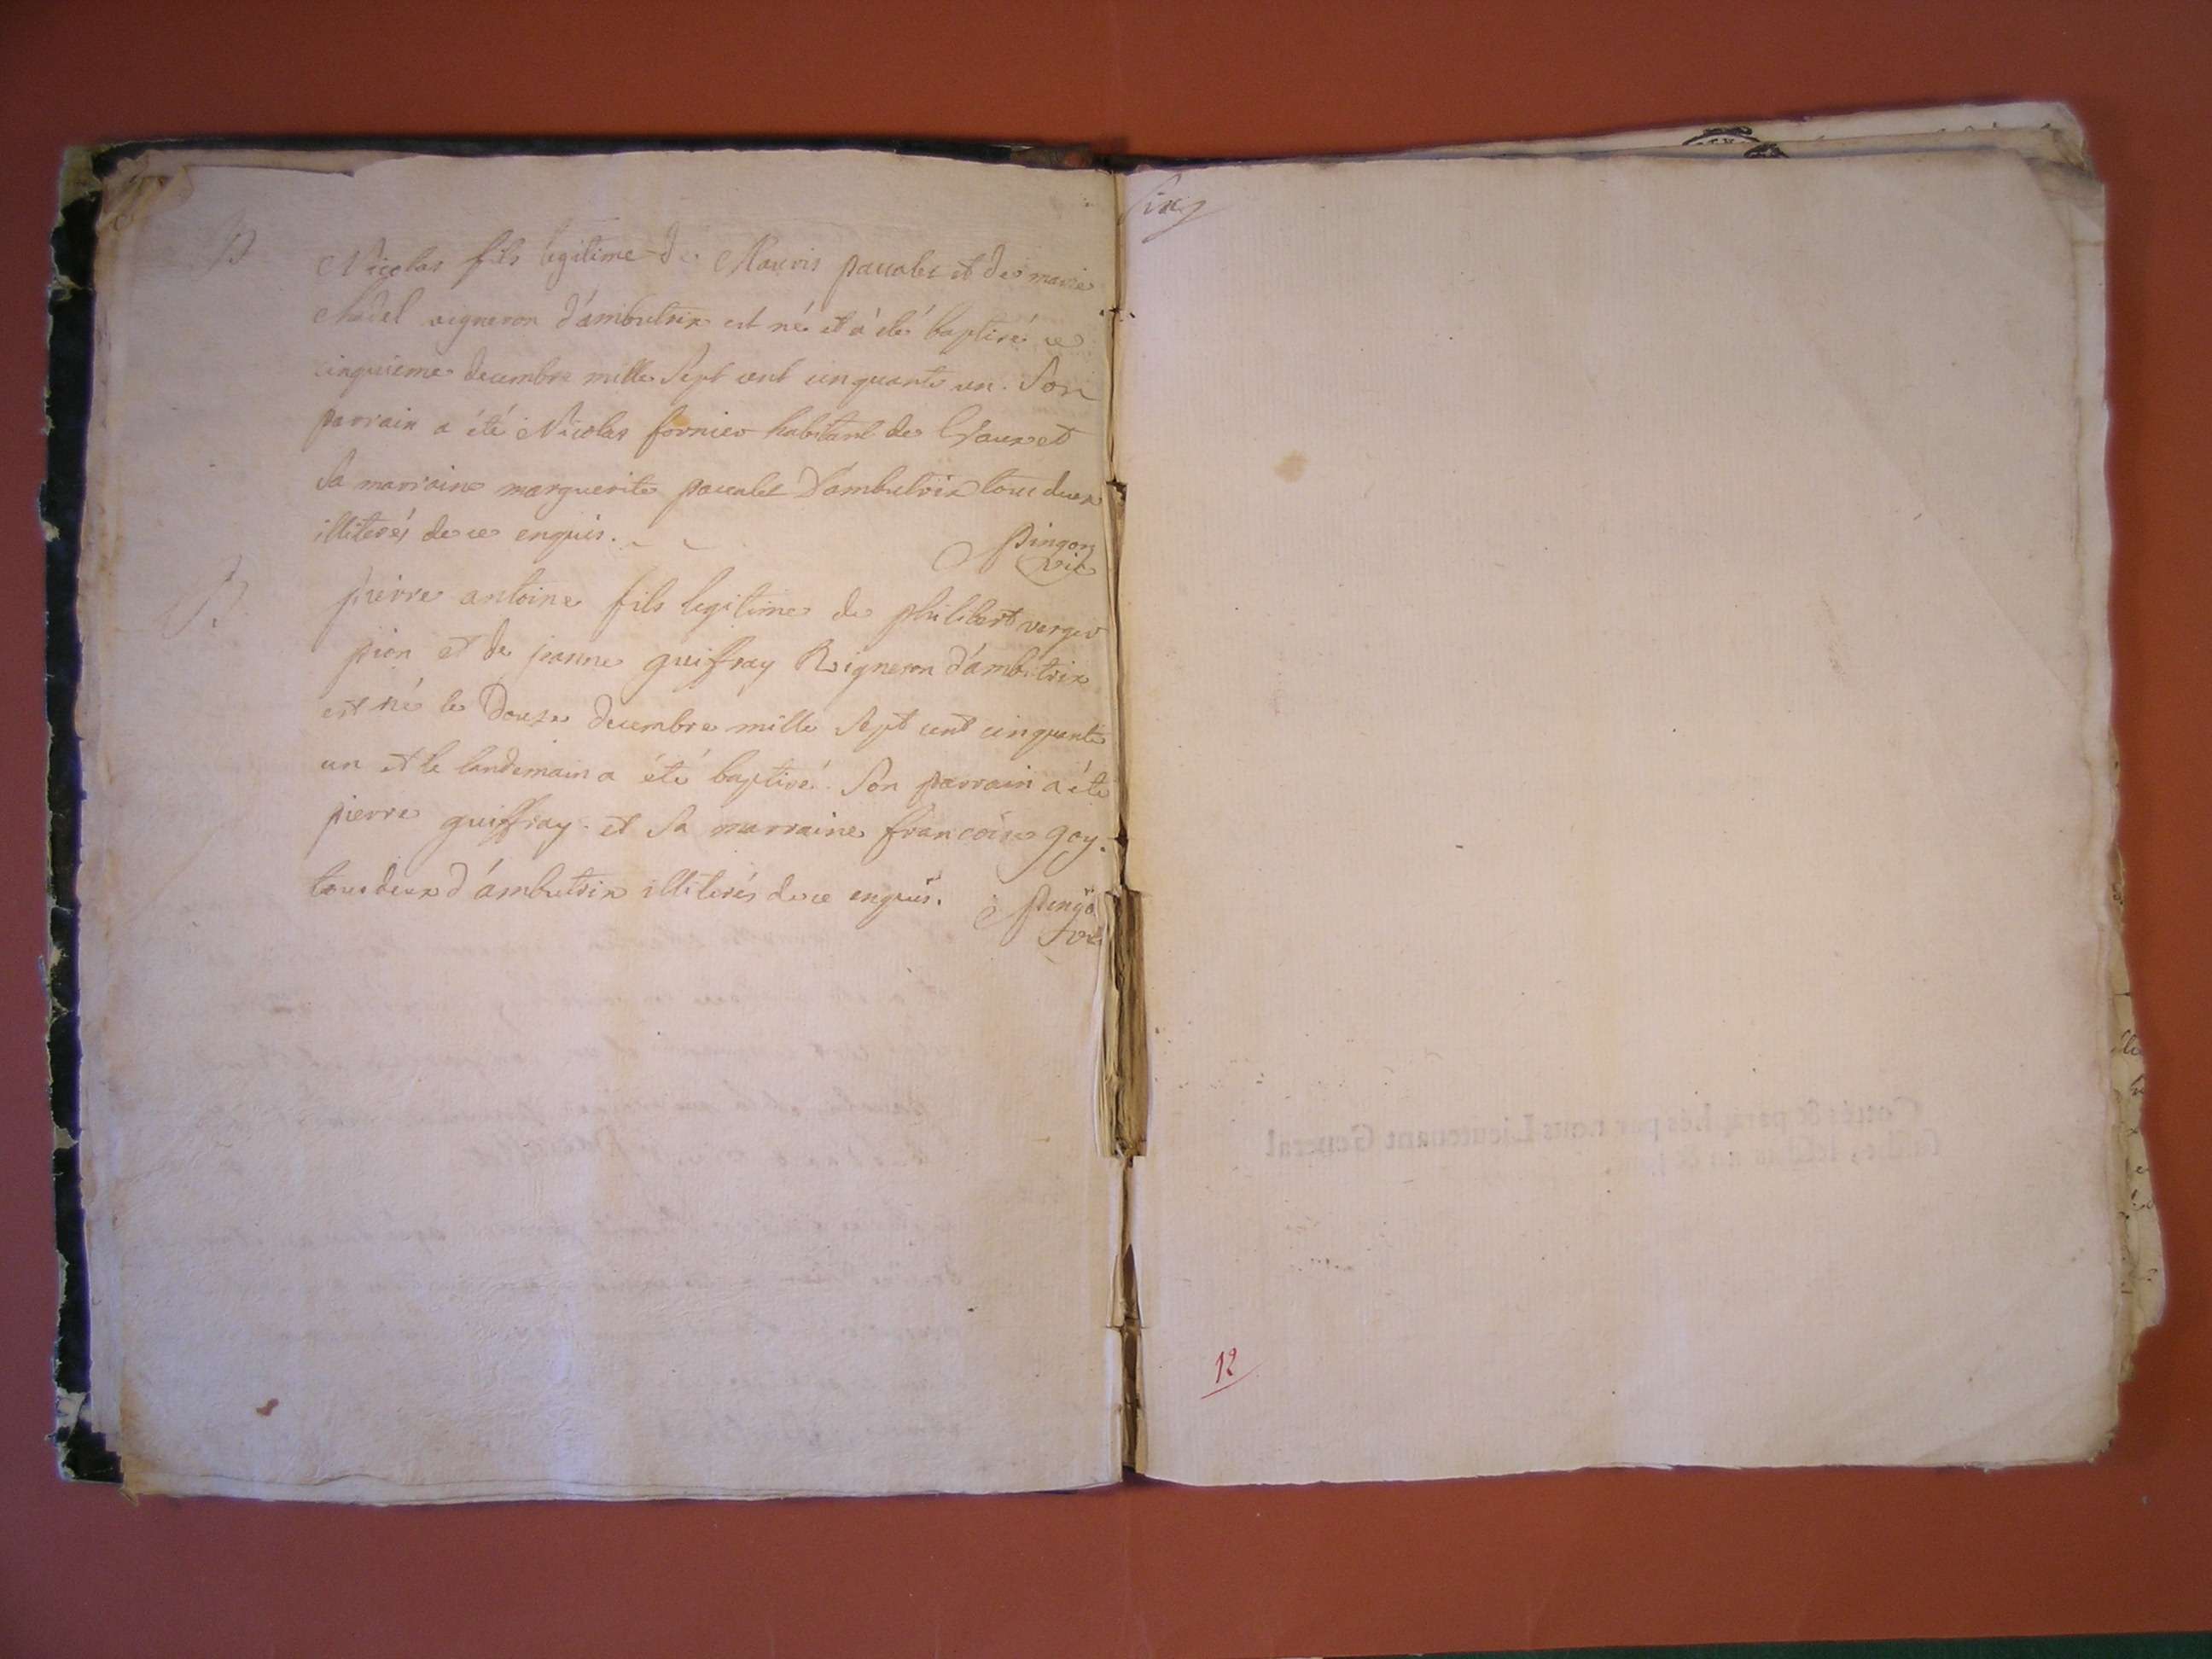 B
Nicolas fils legitime de Mauris paccalet et de marie
chadel vigneron d'ambutrix est né et a été baptisé ce
cinquieme decembre mille Sept cent cinquante un. Son
parrain a été Nicolas fornier habitant de Vaux et
Sa marraine marguerite paccalet D'ambutrix tous deux
illiterés de ce enquis.
Pingon
vic
B
pierre antoine fils legitime de philibert verger
pion et de jeanne guiffray vigneron d'ambutrix
est né le Douze decembre mille Sept cent cinquante
un et le landemain a été baptisé. Son parrain a été
pierre guiffray. et Sa marraine francoise goy.
tous deux d'ambutrix illiterés de ce enquis.
Pingõ
vic
Six
Cottés & paraphés par nous Lieutenant General
12